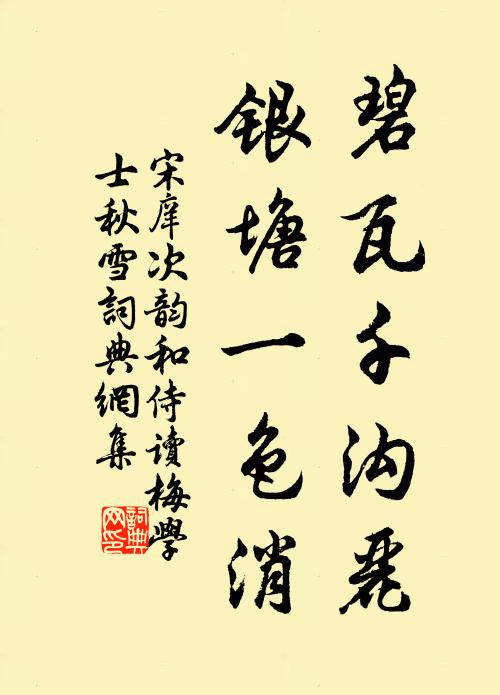 碧瓦千沟麗
銀塘一色消
宋庠次韵和侍读梅學
士秋雪詞典網集
詞典
网印